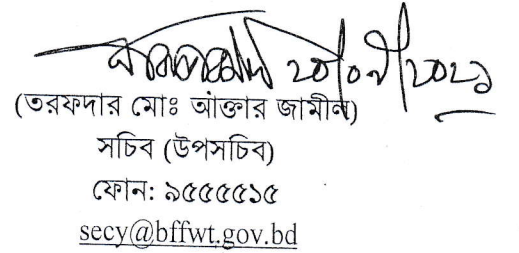 ২০/০৭/২০২১
(তরফদার মোঃ আক্তার জামীল)
সচিব (উপসচিব)
ফোন: ৯৫৫৫৫১৫
secy@bffwt.gov.bd